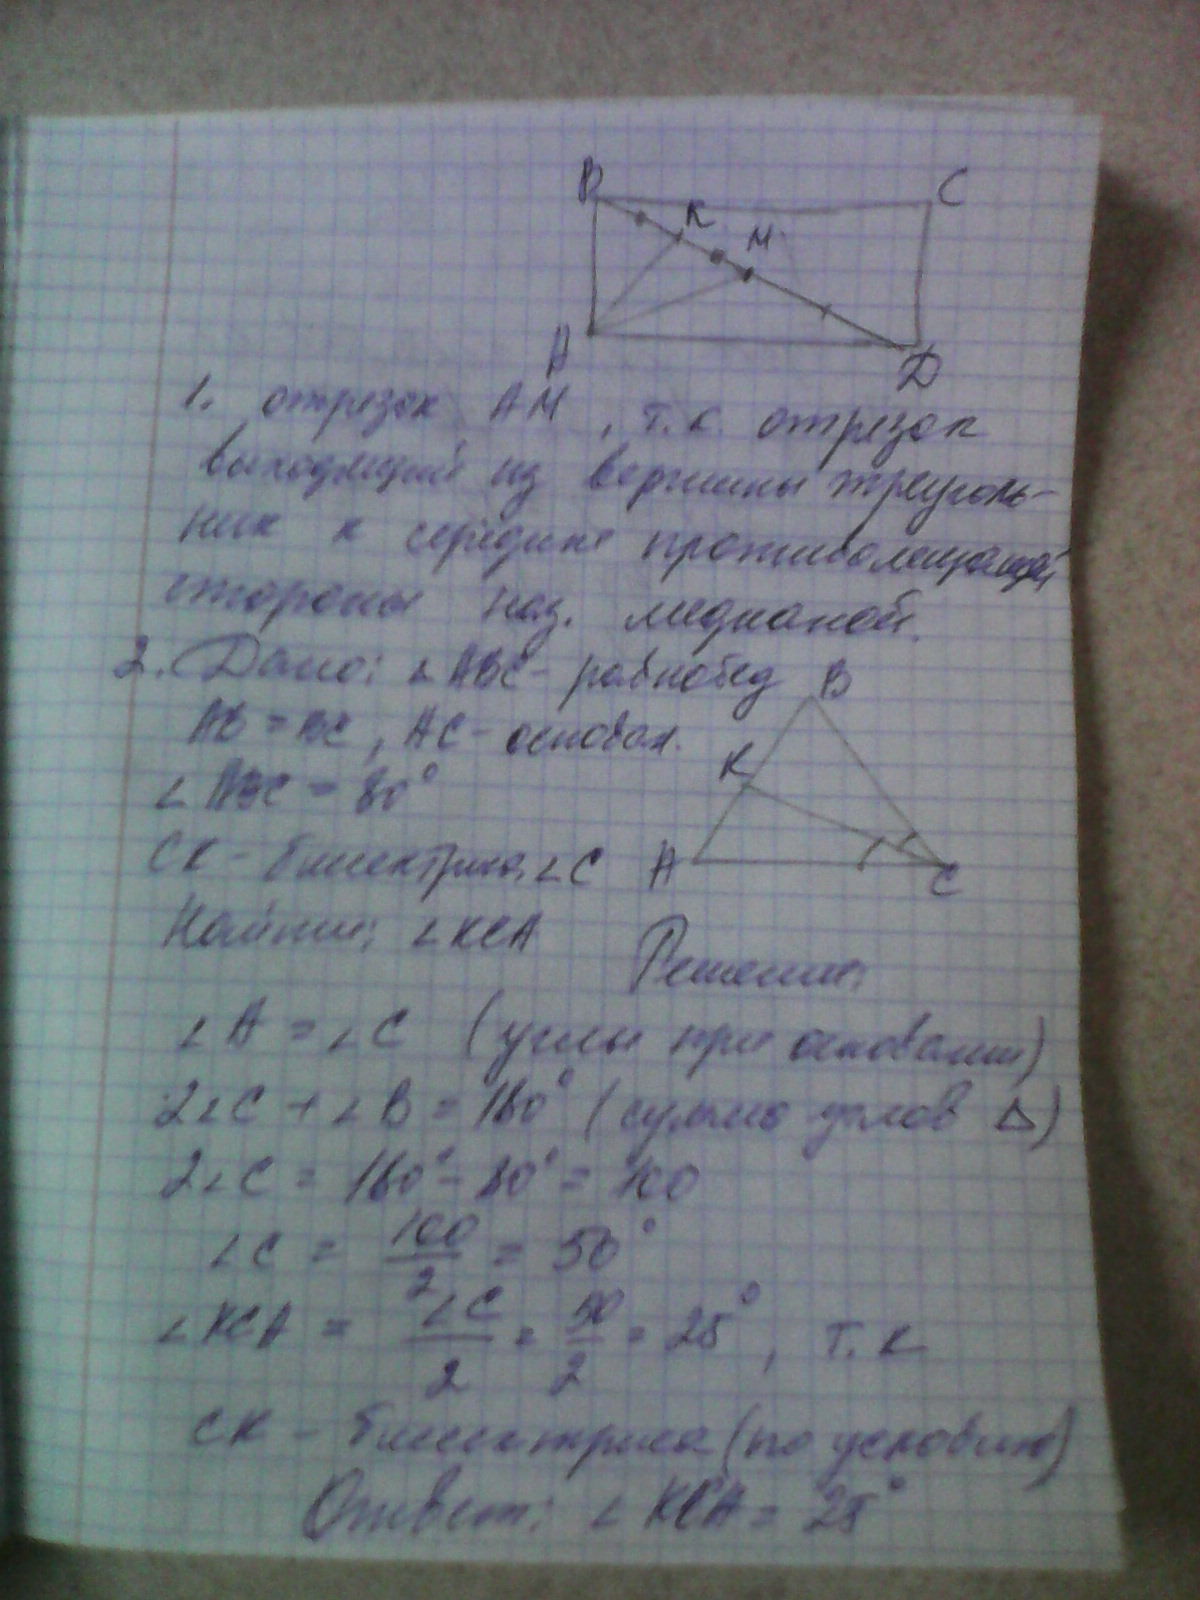 B C
K M
A D
1. отрезок АМ, т.к. отрезок
выходящий из вершины треуголь-
ник к середине противолежащей
стороны наз. медианой.
2. Дано: ∠ABC - равнобед
AB = BC, AC - основан.
∠ABC = 80°
CK - биссектриса ∠C
Найти: ∠KCA
B
K
A C
Решение:
∠A = ∠C (углы при основании)
2∠C + ∠B = 180° (сумма углов Δ)
2∠C = 180° - 80° = 100
∠C = 100/2 = 50°
∠KCA = ∠C/2 = 50/2 = 25°, т.к
CK - биссектриса (по условию)
Ответ: ∠KCA = 25°